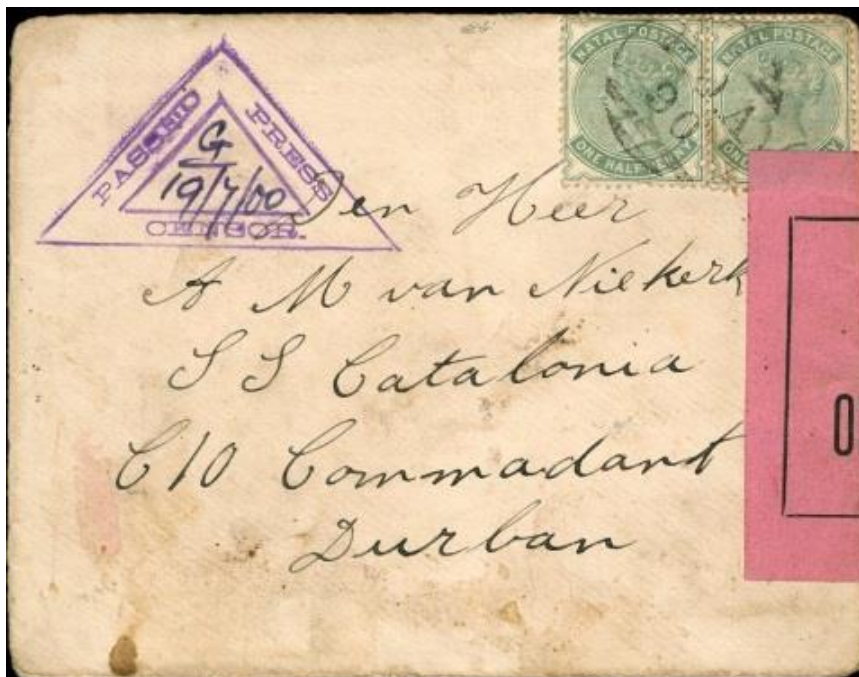 PASSED PRESS CENSOR.
G
19/7/00
NATAL POSTAGE
ONE HALF PENNY
NATAL POSTAGE
ONE
Den Heer
A M van Niekerk
S S Catalonia
C/O Commadant
Durban
O